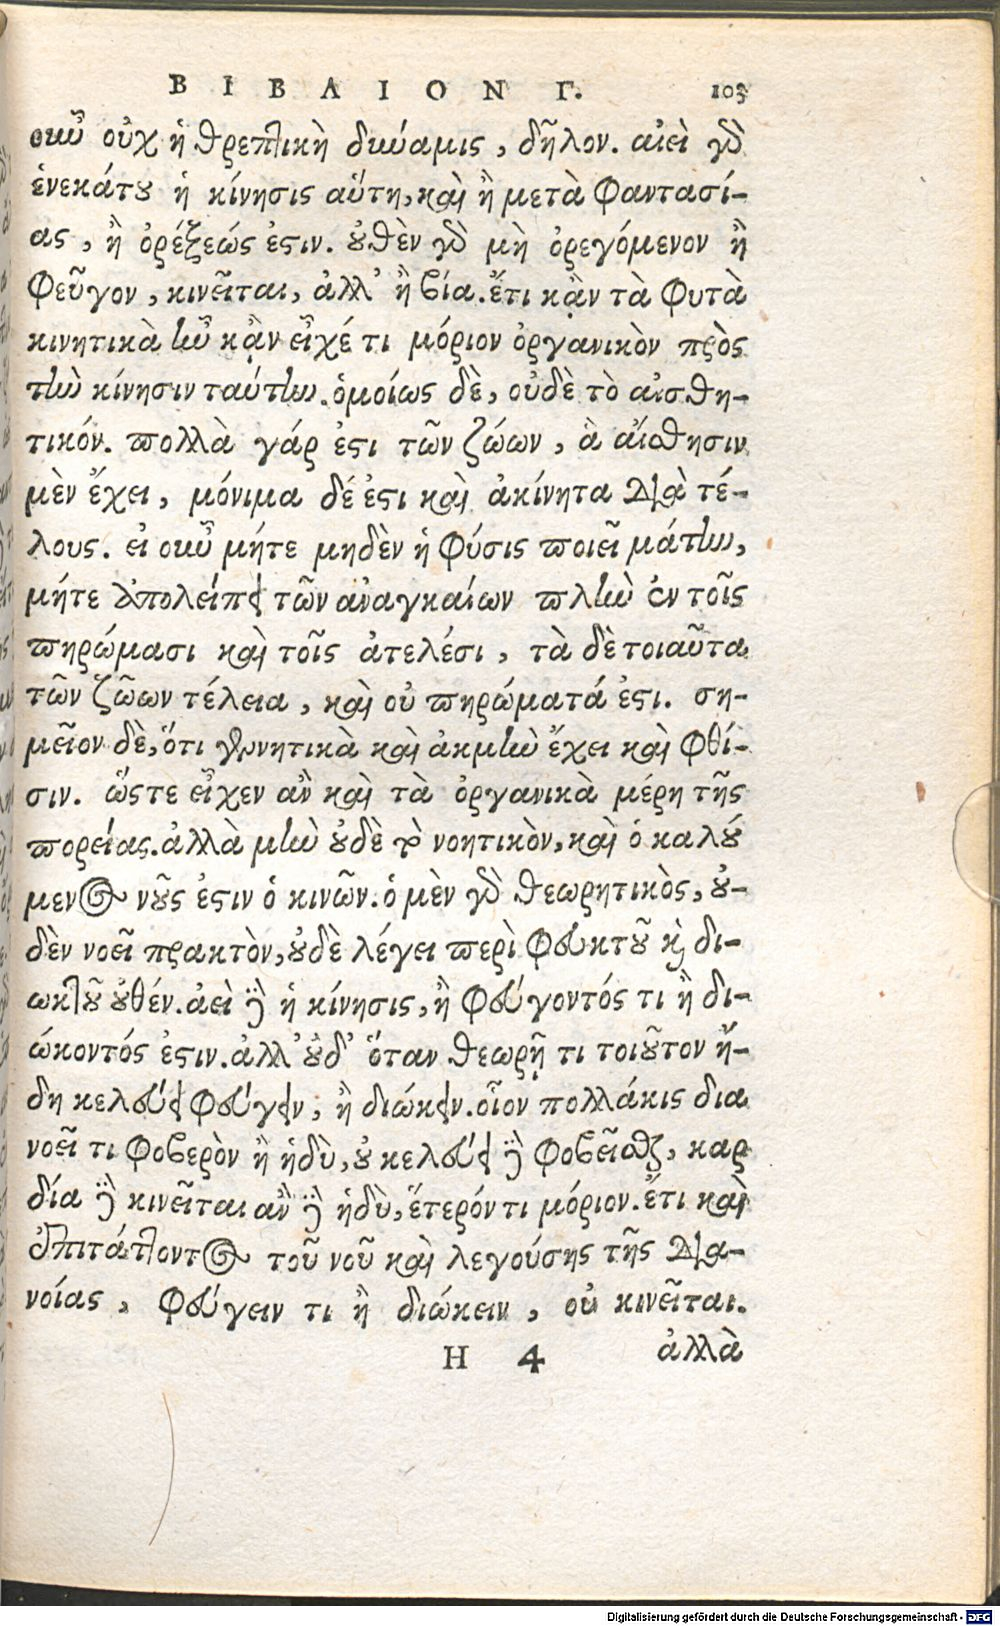 ΒΙΒΛΙΟΝ Γ. 103
οὖν οὐχ ἡ θρεπτικὴ δύναμις, δῆλον. αἰεὶ γὰρ
ἑνεκάτου ἡ κίνησις αὕτη, καὶ ἢ μετὰ φαντασί-
ας, ἢ ὀρέξεώς ἐστιν. οὐθὲν γὰρ μὴ ὀρεγόμενον ἢ
φεῦγον, κινεῖται, ἀλλ' ἢ βία. ἔτι κᾂν τὰ φυτὰ
κινητικὰ ἦν κᾂν εἶχέ τι μόριον ὀργανικὸν πρὸς
τὴν κίνησιν ταύτην. ὁμοίως δὲ, οὐδὲ τὸ αἰσθη-
τικόν. πολλὰ γάρ ἐστι τῶν ζώων, ἃ αἴσθησιν
μὲν ἔχει, μόνιμα δέ ἐστι καὶ ἀκίνητα διὰ τέ-
λους. εἰ οὖν μήτε μηδὲν ἡ φύσις ποιεῖ μάτην,
μήτε ἀπολείπει τῶν αναγκαίων πλὴν ἐν τοῖς
πηρώμασι καὶ τοῖς ἀτελέσι, τὰ δὲ τοιαῦτα
τῶν ζῶων τέλεια, καὶ οὐ πηρώματά ἐστι. ση-
μεῖον δὲ, ὅτι γεννητικὰ καὶ ἀκμὴν ἔχει καὶ φθί-
σιν. ὥστε εἶχεν ἂν καὶ τὰ ὀργανικὰ μέρη τῆς
πορείας. ἀλλὰ μὴν οὐδὲ τὸ νοητικὸν, καὶ ὁ καλού
μενος νοῦς ἐστιν ὁ κινῶν. ὁ μὲν γὰρ θεωρητικὸς, οὐ-
δὲν νοεῖ πρακτὸν, οὐδὲ λέγει περὶ φευκτοῦ καὶ δι-
ωκτοῦ οὐθέν. ἀεὶ δὲ ἡ κίνησις, ἢ φεύγοντός τι ἢ δι-
ώκοντός ἐστιν. ἀλλ' οὐδ' ὅταν θεωρῇ τι τοιοῦτον ἤ-
δη κελεύει φεύγειν, ἢ διώκειν. οἷον πολλάκις δια
νοεῖ τι φοβερὸν ἢ ἡδὺ, οὐ κελεύει δὲ φοβεῖσθαι, καρ
δία δὲ κινεῖται ἂν δὲ ἡδὺ, ἕτερόν τι μόριον. ἔτι καὶ
ἐπιτάττοντος τοῦ νοῦ καὶ λεγούσης τῆς δια-
νοίας, φεύγειν τι ἢ διώκειν, οὐ κινεῖται.
H 4 ἀλλὰ
Digitalisierung gefördert durch die Deutsche Forschungsgemeinschaft - DFG